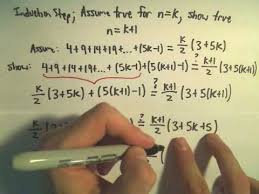 Induction Step; Assume true for n=k, show true
n = k+1
Assume: 4+9+14+19+...+(5k-1) = k/2 (3+5k)
Show: 4+9+14+19+...+(5k-1)+(5(k+1)-1) ?= k+1/2 (3+5(k+1))
k/2 (3+5k) + (5(k+1)-1) ?= k+1/2 (3+5(k+1))
k/2 (3+5 ?= k+1/2 (3+5k+5)
/2 (